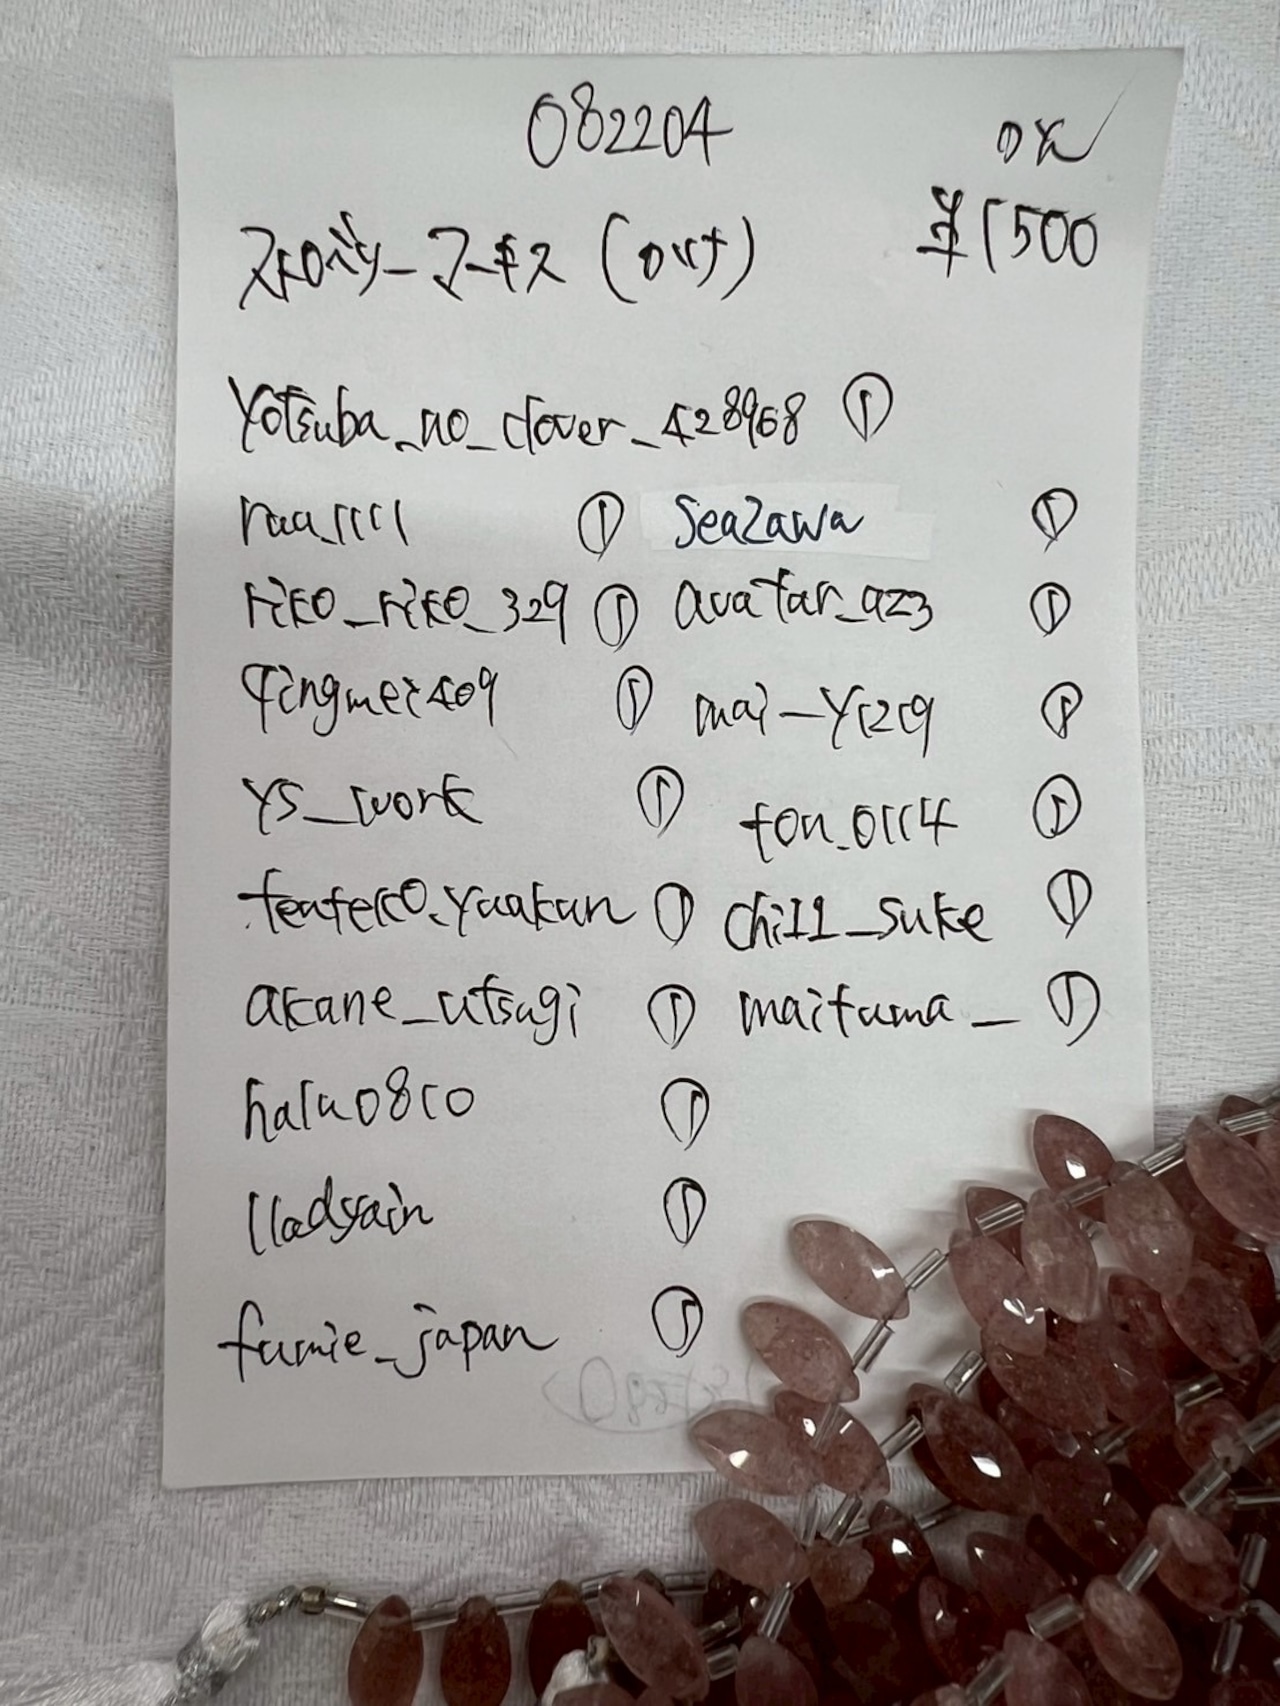 082204
OK
ストロベリーマーキス (ロけ)
¥1500
Yotsuba_no_clover_428968 ①
raa_1111 ①
Seazawa ①
riko_riko_329 ①
avatar_az3 ①
qingmei409 ①
mai_y1209 ①
ys_work ①
ton_0114 ①
chill_suke ①
akane_utsugi ①
maituma_ ①
halu0810 ①
lladyain ①
fumie_japan ①